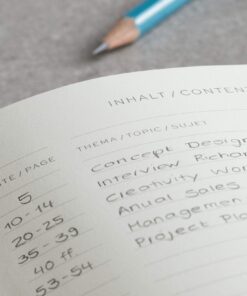 INHALT / CONTEN
THEMA / TOPIC / SUJET
TE / PAGE
5 Concept Design
10-14 Interview Richar
20-25 Creativity Wor
35-39 Anual Sales
40 ff. Managemen
53-54 Project Pla